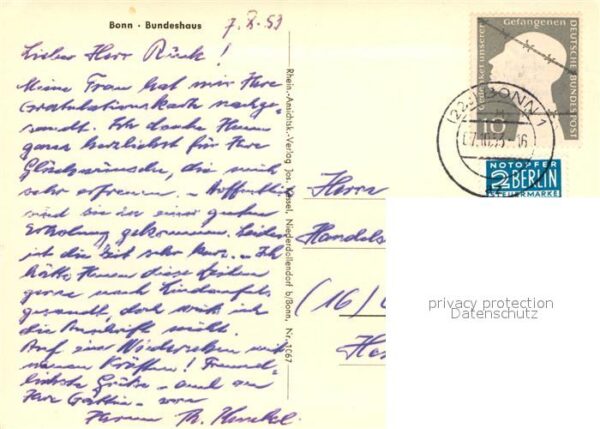 Bonn · Bundeshaus
7.X.53
Lieber Herr Rück!
Meine Frau hat mir Ihre
Gratulationskarte nachge-
sandt. Ich danke Ihnen
ganz herzlichst für Ihre
Glückwünsche, die mich
sehr erfreuen. Hoffentlich
sind Sie in einer guten
Erholung gekommen. Leider
ist die Zeit sehr kurz. – Ich
hätte Ihnen diese Zeilen
gerne nach Lindenfels
gesandt, doch weiß ich
die Anschrift nicht.
Auf ein Wiedersehen mit
neuen Kräften! Freund-
lichste Grüße – auch an
Ihre Gattin – von
Ihrem Th. Henkel
Rhein.-Ansichtsk.-Verlag Jos. Kessel, Niederdollendorf b/Bonn, Nr. 1067
Gedenket unserer Gefangenen
DEUTSCHE BUNDESPOST
10
(22c) BONN 1
07.10.53.-16
NOTOPFER
2 BERLIN
STEUERMARKE
Herrn
Handels
(16)
privacy protection
Datenschutz